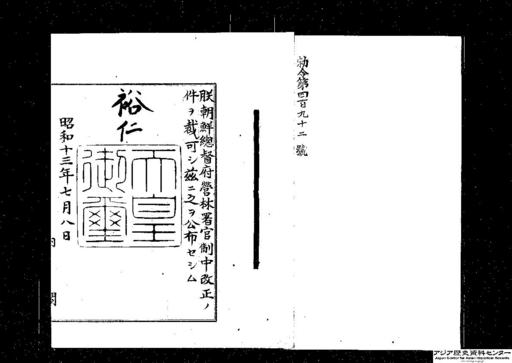 勅令第四百九十二號
朕朝鮮總督府營林署官制中改正ノ
件ヲ裁可シ茲ニ之ヲ公布セシム
裕仁
天皇
御璽
昭和十三年七月八日
内閣
アジア歴史資料センター
Japan Center for Asian Historical Records